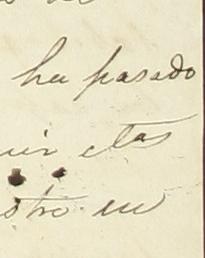 ha pasado
uir etas
stro en